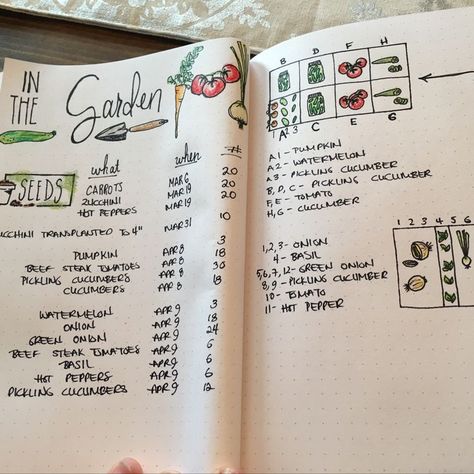 IN
THE
Garden
what when #
SEEDS
CARROTS MAR 6 20
ZUCCHINI MAR 19 20
HOT PEPPERS MAR 19 20
UCCHINI TRANSPLANTED TO 4" MAR 31 10
PUMPKIN APR 8 3
BEEF STEAK TOMATOES APR 8 18
PICKLING CUCUMBERS APR 8
CUCUMBERS APR 8 18
WATERMELON APR 9 3
ONION APR 9 18
GREEN ONION APR 9 24
BEEF STEAK TOMATOES APR 9 6
BASIL APR 9 6
HOT PEPPERS APR 9 6
PICKLING CUCUMBERS APR 9 12
B D F H
1 2 3
A C E G
A1 - PUMPKIN
A2 - WATERMELON
A3 - PICKLING CUCUMBER
B, D, C - PICKLING CUCUMBER
F, E - TOMATO
H, G - CUCUMBER
1, 2, 3 - ONION
4 - BASIL
5, 6, 7, 12 - GREEN ONION
8, 9 - PICKLING CUCUMBER
10 - TOMATO
11 - HOT PEPPER
1 2 3 4 5 6